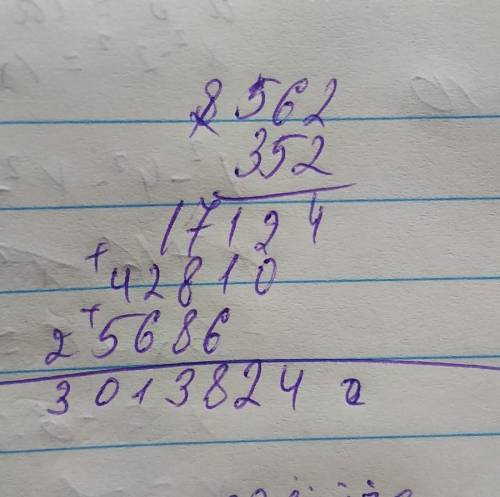 × 8562
352
17124
+ 42810
+ 25686
3013824 г